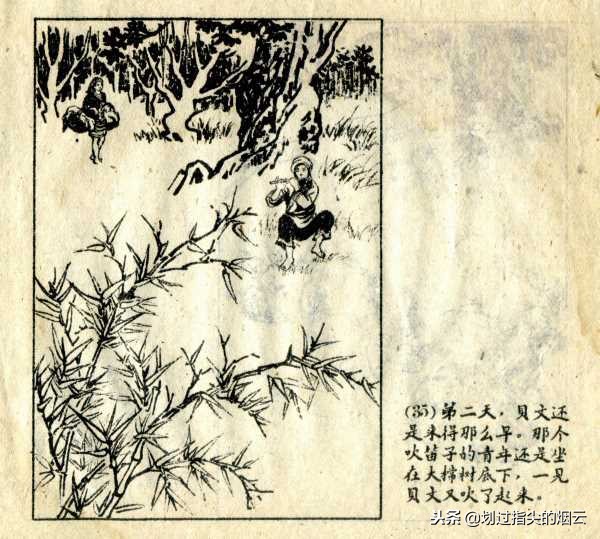 (35) 第二天，贝文还
是来得那么早。那个
吹笛子的青年还是坐
在大榕树底下，一见
贝文又吹了起来。
头条 @划过指头的烟云